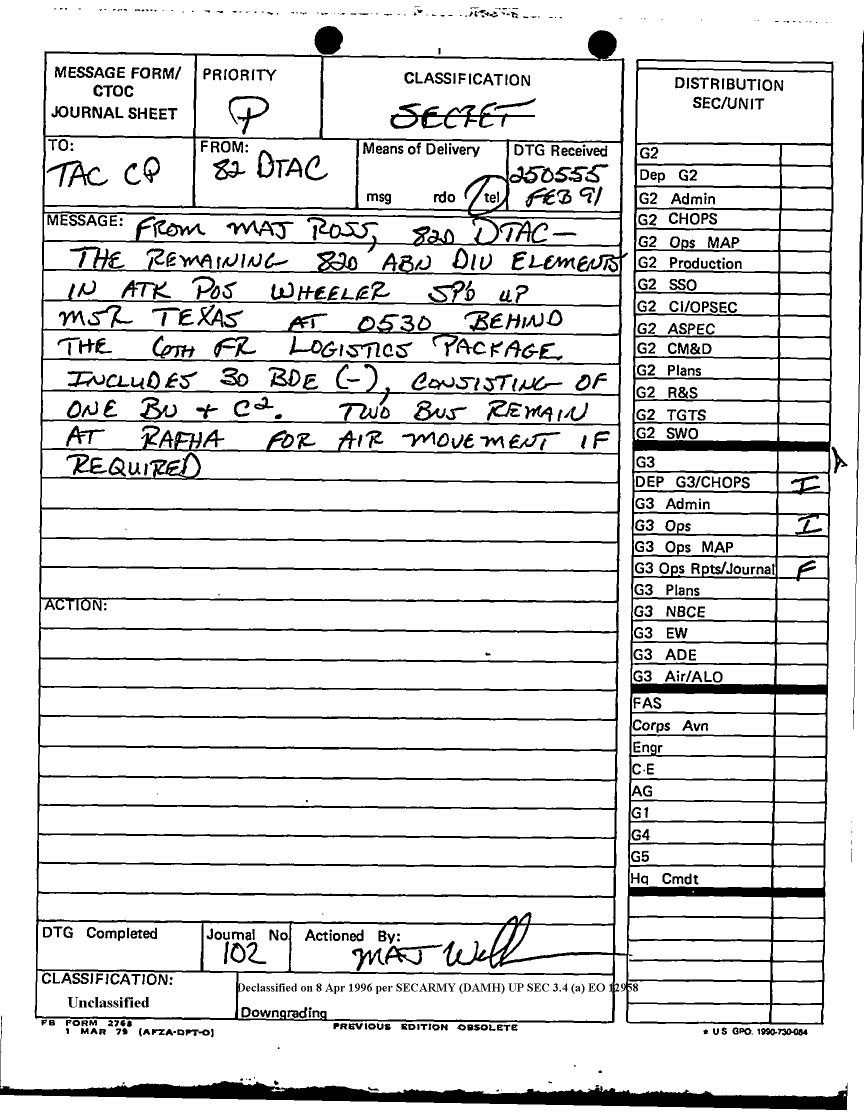 MESSAGE FORM/
CTOC
JOURNAL SHEET
PRIORITY
P
CLASSIFICATION
SECRET
TO:
TAC CP
FROM:
82 DTAC
Means of Delivery
msg rdo tel
DTG Received
250555
FEB 91
MESSAGE: FROM MAJ ROSS, 82D DTAC —
THE REMAINING 82D ABN DIV ELEMENTS
IN ATK POS WHEELER SP'd UP
MSR TEXAS AT 0530 BEHIND
THE 6TH FR LOGISTICS PACKAGE.
INCLUDES 3D BDE (-), CONSISTING OF
ONE BN + C². TWO BNS REMAIN
AT RAFHA FOR AIR MOVEMENT IF
REQUIRED
ACTION:
DTG Completed
Journal No
102
Actioned By:
MAJ
CLASSIFICATION:
Unclassified
Declassified on 8 Apr 1996 per SECARMY (DAMH) UP SEC 3.4 (a) EO 12958
Downgrading
FB FORM 2768
1 MAR 79 (AFZA-DPT-O)
PREVIOUS EDITION OBSOLETE
DISTRIBUTION
SEC/UNIT
G2
Dep G2
G2 Admin
G2 CHOPS
G2 Ops MAP
G2 Production
G2 SSO
G2 CI/OPSEC
G2 ASPEC
G2 CM&D
G2 Plans
G2 R&S
G2 TGTS
G2 SWO
G3 A
DEP G3/CHOPS I
G3 Admin
G3 Ops I
G3 Ops MAP
G3 Ops Rpts/Journal F
G3 Plans
G3 NBCE
G3 EW
G3 ADE
G3 Air/ALO
FAS
Corps Avn
Engr
C-E
AG
G1
G4
G5
Hq Cmdt
* U S GPO. 1990-730-084